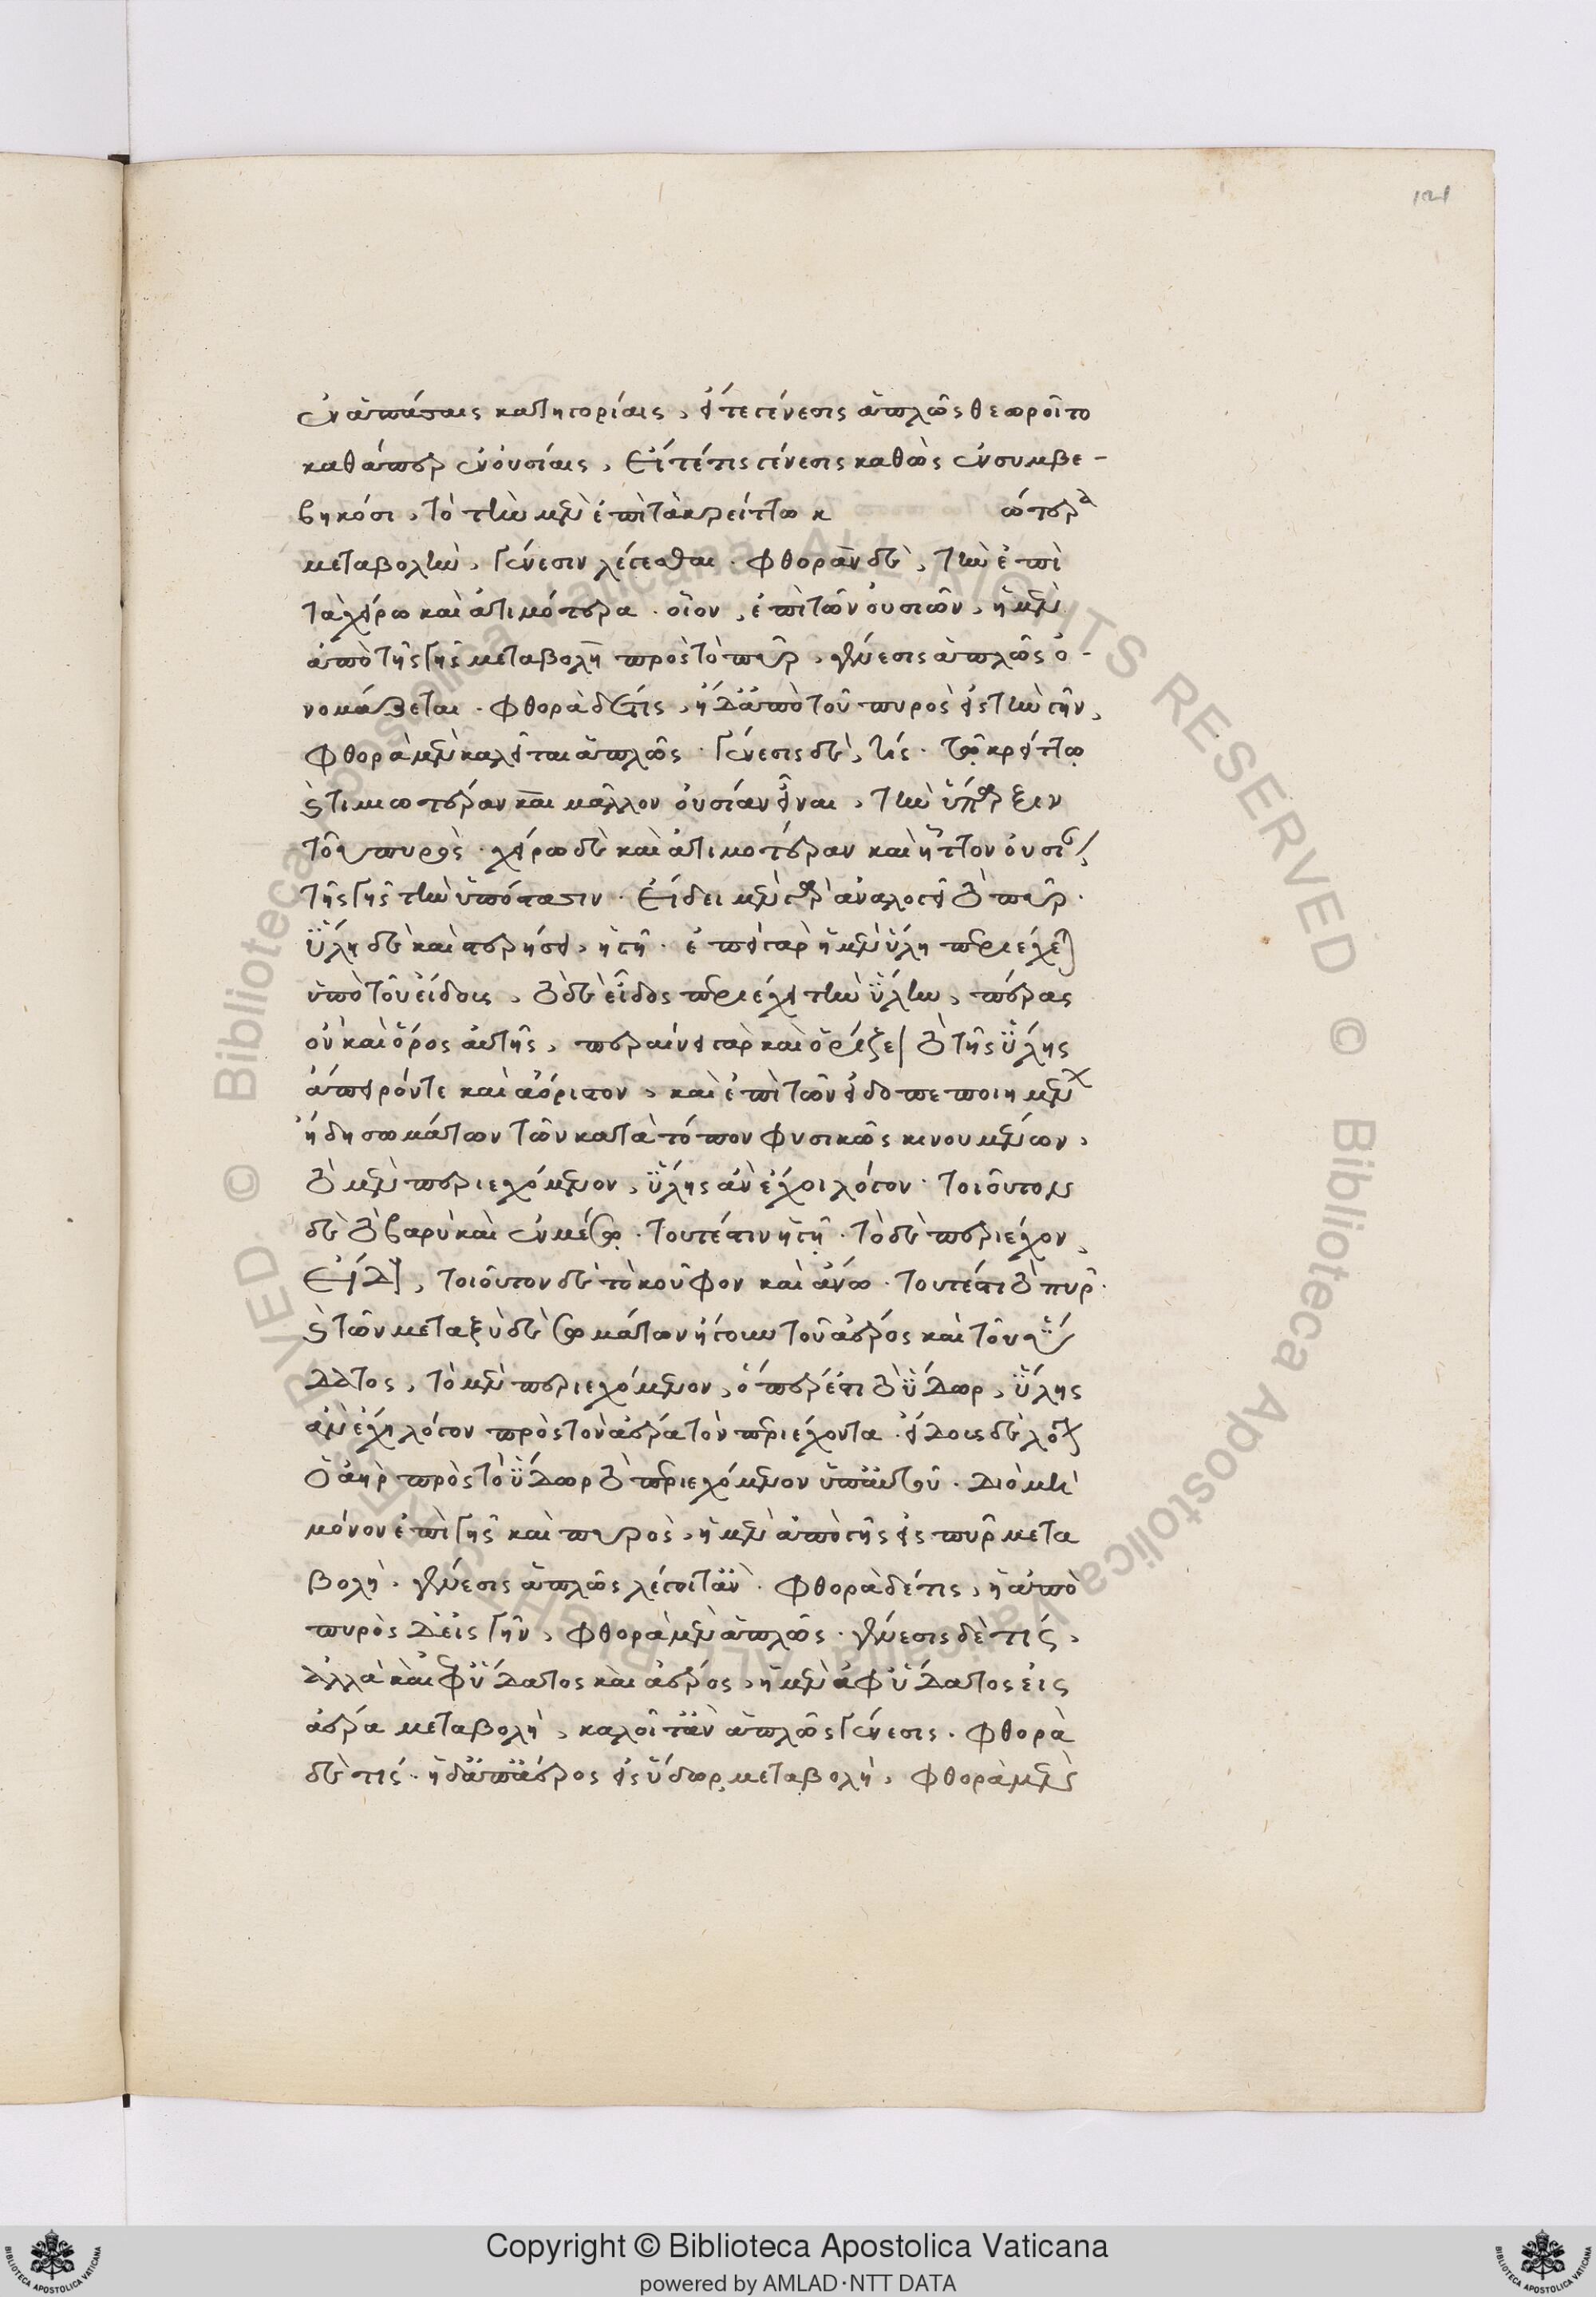 121
ἐν ἁπάσαις κατηγορίαις, εἴτε γένεσις ἁπλῶς θεωροῖτο
καθάπερ ἐν οὐσίαις, εἴτέ τις γένεσις καθὼς ἐν συμβε-
βηκόσι, τὸ τὴν μὲν ἐπὶ τὰ κρείττω κ ώτερα
μεταβολὴν, γένεσιν λέγεσθαι. φθορὰν δὲ, τὴν ἐπὶ
τὰ χείρω καὶ ἀτιμότερα. οἷον, ἐπὶ τῶν οὐσιῶν, ἡ μὲν
ἀπὸ τῆς γῆς μεταβολὴ πρὸς τὸ πῦρ, γένεσις ἁπλῶς ὀ-
νομάζεται. φθορὰ δέ τις, ἡ δ' ἀπὸ τοῦ πυρὸς εἰς τὴν γῆν,
φθορὰ μὲν καλεῖται ἁπλῶς. γένεσις δὲ, τίς. τῷ κρείττω
καὶ τιμιωτέραν καὶ μᾶλλον οὐσίαν εἶναι, τὴν ὕπαρξιν
τοῦ πυρὸς. χείρω δὲ καὶ ἀτιμοτέραν καὶ ἧττον οὐσίαν
τῆς γῆς τὴν ὑπόστασιν. εἴδει μὲν γὰρ ἀναλογεῖ τὸ πῦρ.
ὕλη δὲ καὶ στερήσει, ἡ γῆ. ἐπεὶ γὰρ ἡ μὲν ὕλη περιέχεται
ὑπὸ τοῦ εἴδους, τὸ δὲ εἶδος περιέχει τὴν ὕλην, πέρας
ὂν καὶ ὅρος αὐτῆς, περαίνει γὰρ καὶ ὁρίζει τὸ τῆς ὕλης
ἄπειρόν τε καὶ ἀόριστον, καὶ ἐπὶ τῶν εἰδοπεποιημένων
ἤδη σωμάτων τῶν κατὰ τόπον φυσικῶς κινουμένων,
τὸ μὲν περιεχόμενον, ὕλης ἂν ἔχοι λόγον. τοιοῦτον
δὲ τὸ βαρὺ καὶ ἐν μέσῳ. τουτέστιν ἡ γῆ. τὸ δὲ περιέχον,
εἴδους, τοιοῦτον δὲ τὸ κοῦφον καὶ ἄνω. τουτέστι τὸ πῦρ.
καὶ τῶν μεταξὺ δὲ σωμάτων ἤγουν τοῦ ἀέρος καὶ τοῦ ὕ
δατος, τὸ μὲν περιεχόμενον, ὅπερ ἐστὶ τὸ ὕδωρ, ὕλης
ἂν ἔχῃ λόγον πρὸς τὸν ἀέρα τὸν περιέχοντα. εἴδους δὲ λόγον
ὁ ἀὴρ πρὸς τὸ ὕδωρ τὸ περιεχόμενον ὑπ' αὐτοῦ. διὸ μὴ
μόνον ἐπὶ γῆς καὶ πυρὸς, ἡ μὲν ἀπὸ γῆς εἰς πῦρ μετα
βολὴ, γένεσις ἁπλῶς λέγοιτ' ἂν. φθορὰ δέ τις, ἡ ἀπὸ
πυρὸς δ' εἰς γῆν, φθορὰ μὲν ἁπλῶς. γένεσις δὲ τίς,
ἀλλὰ καὶ ἐφ' ὕδατος καὶ ἀέρος, ἡ μὲν ἀφ' ὕδατος εἰς
ἀέρα μεταβολὴ, καλοῖτ' ἂν ἁπλῶς γένεσις. φθορὰ
δὲ τίς. ἡ δ' ἀπ' ἀέρος εἰς ὕδωρ μεταβολὴ, φθορὰ μὲν
Copyright © Biblioteca Apostolica Vaticana
powered by AMLAD·NTT DATA